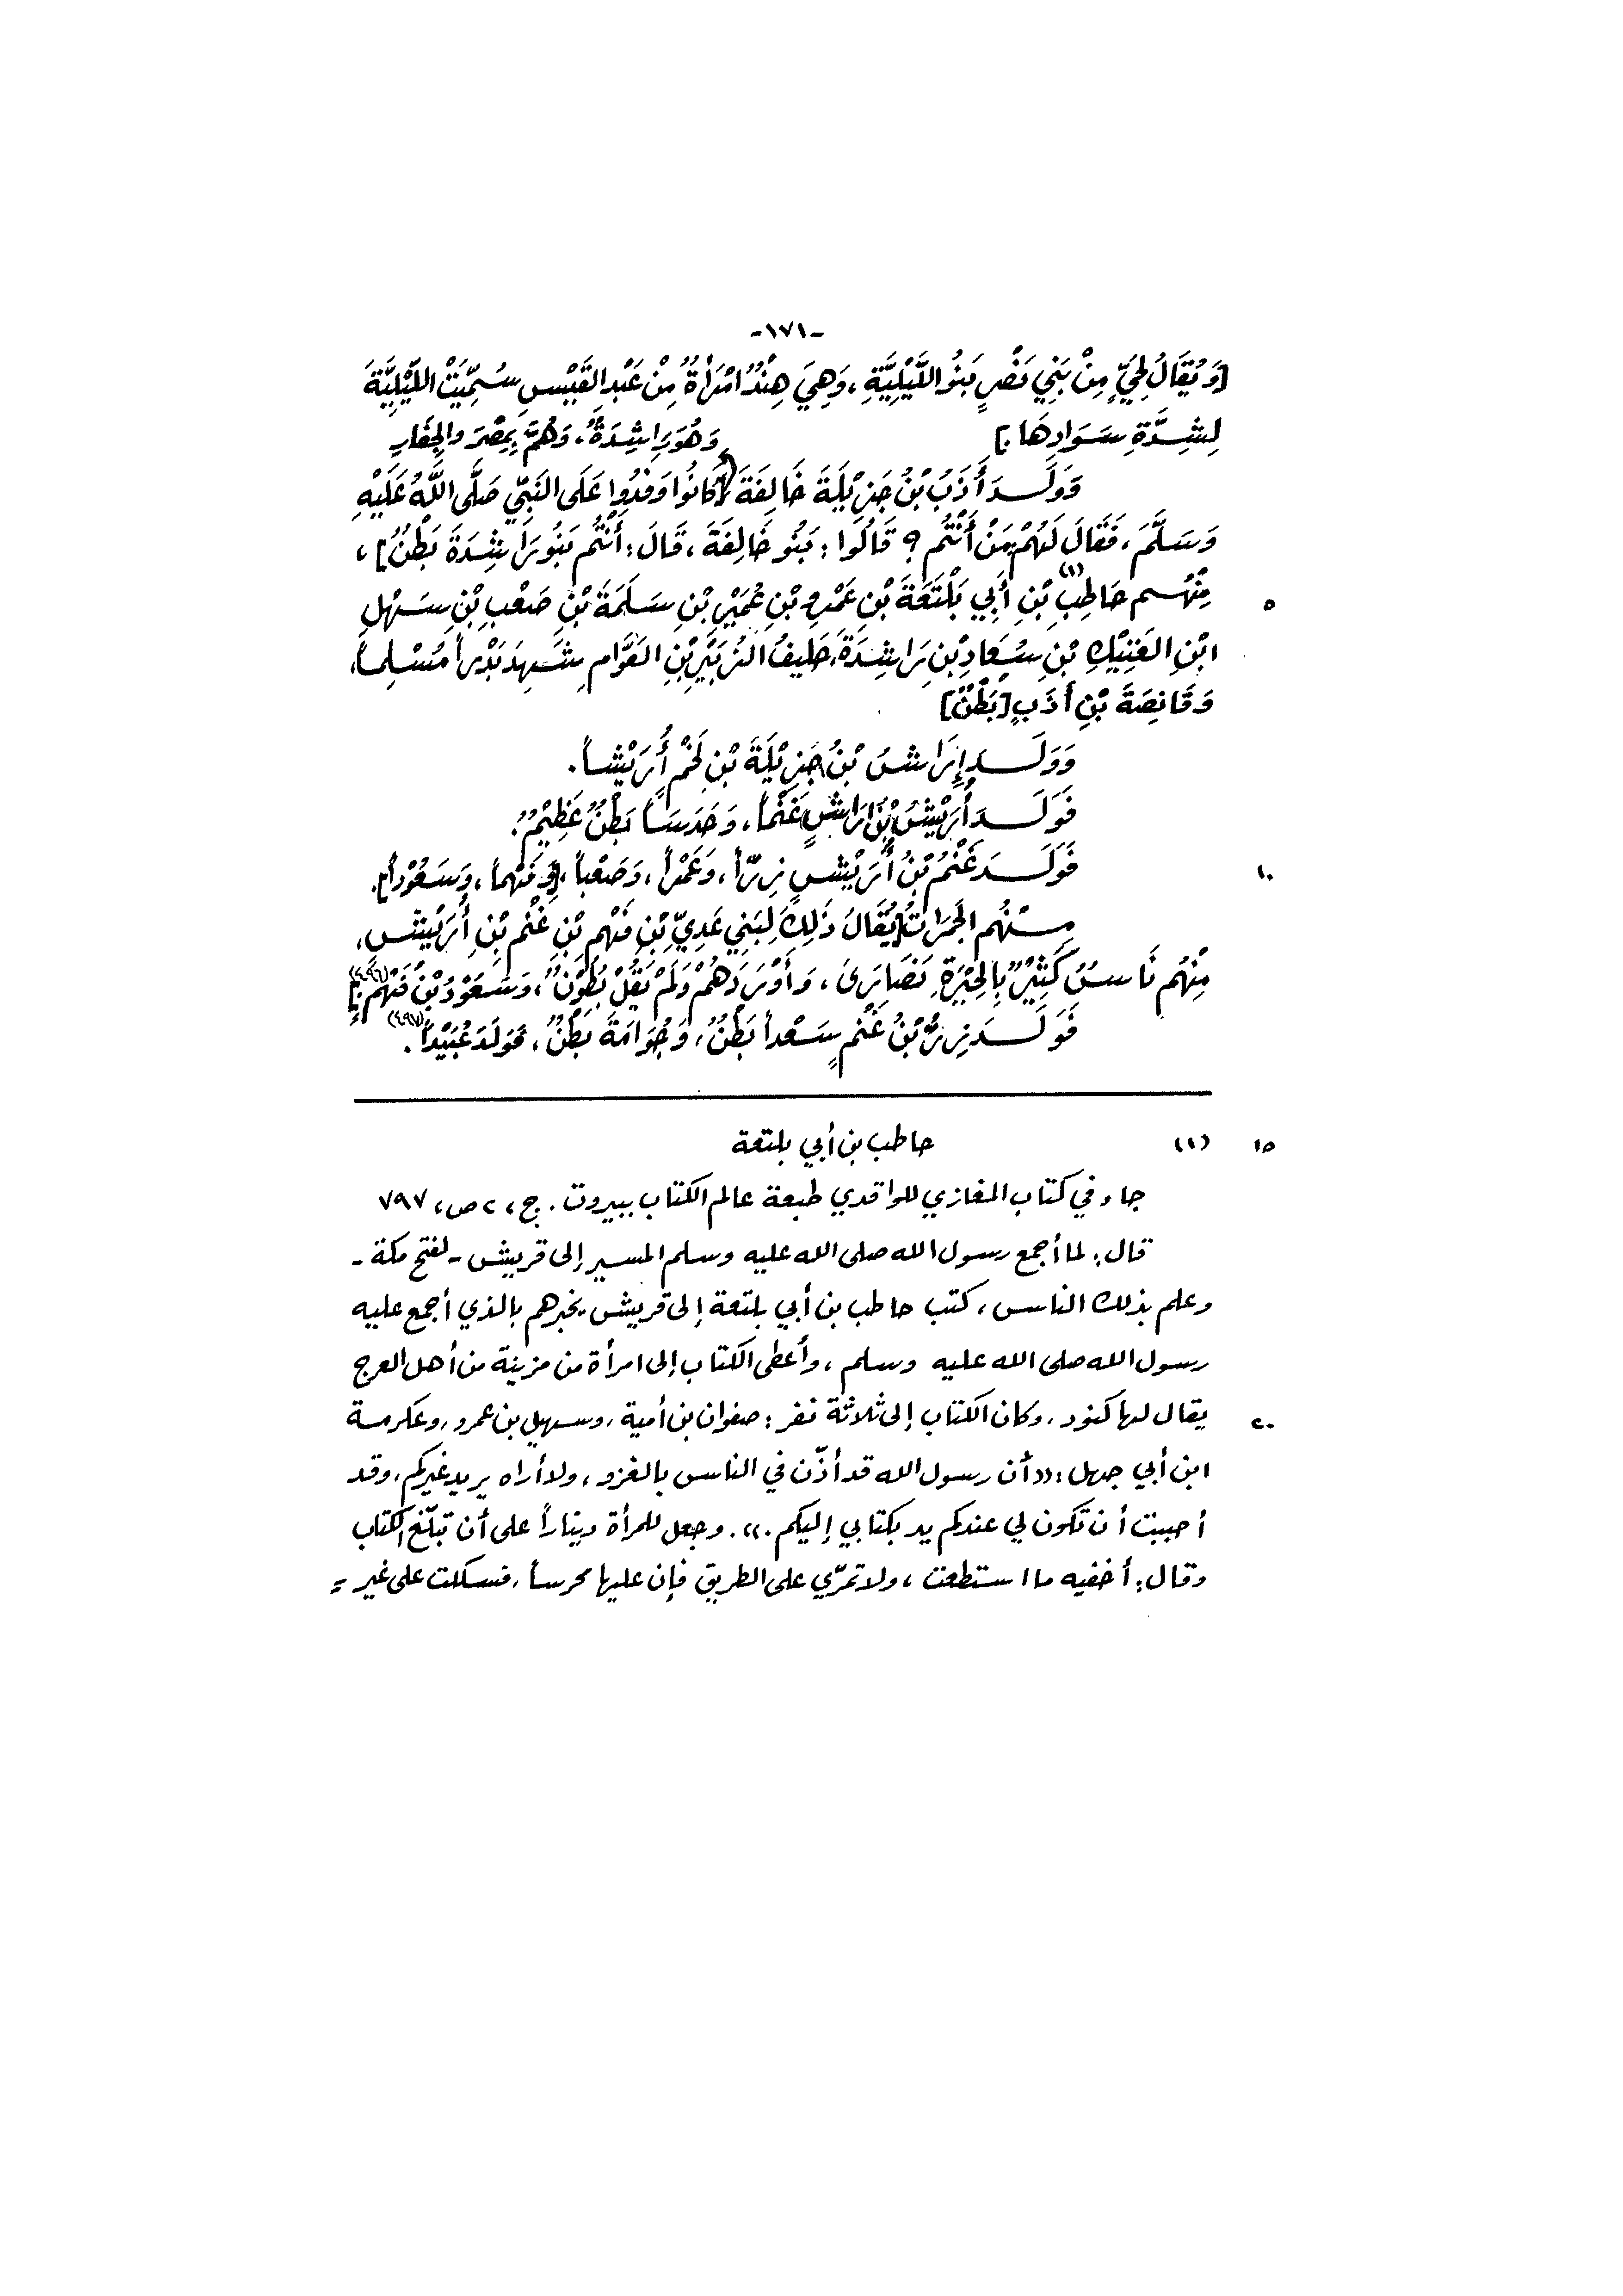 -١٧١-
[وَيُقَالُ لِحَيٍّ مِنْ بَنِي نَصْرٍ بَنُو اللَّيْلِيَّةِ، وَهِيَ هِنْدُ امْرَأَةٌ مِنْ عَبْدِ القَيْسِ سُمِّيَتْ اللَّيْلِيَّةَ
لِشِدَّةِ سَوَادِهَا.] وَهُوَ رَاشِدَةُ، وَهُمْ بِمِصْرَ والجِفَارِ
وَوَلَدَ أَذَبُ بْنُ جَزِيْلَةَ خَالِفَةَ [كَانُوا وَفَدُوا عَلَى النَبِّي صَلَّى اللَّهُ عَلَيْهِ
وَسَلَّمَ، فَقَالَ لَهُمْ مَنْ أَنْتُم؟ قَالُوا: بَنُو خَالِفَةَ، قَالَ: أَنْتُم بَنُو رَاشِدَةَ بَطْنٌ]،
مِنْهُم حَاطِبُ (١) بْنِ أَبِي بَلْتَعَةَ بْنِ عَمْرِو بْنِ عُمَيْرِ بْنِ سَلَمَةَ بْنِ صَعْبِ بْنِ سَهْلِ ٥
ابْنِ العَتِيْكِ بْنِ سُعَادِ بْنِ رَاشِدَةَ، حَلِيفُ الزُبَيْرِ بْنِ العَوَّامِ شَهِدَ بَدْراً مُسْلِماً،
وَقَانِصَةَ بْنِ أَذَبٍ [بَطْنٌ]
وَوَلَدَ إِرَاشُ بْنُ جَزِيْلَةَ بْنِ لَخْمٍ أُرَيْشاً.
فَوَلَدَ أُرَيْشُ بْنُ إرَاشٍ غَنْماً، وَحَدَسَاً بَطْنٌ عَظِيْمٌ.
فَوَلَدَ غَنْمُ بْنُ أُرَيْشٍ زِرّاً، وَعَمْراً، وَصَعْباً، [وَفَهْماً، وَسَعُوْداً]. ١٠
مِنْهُم الجَمَرَاتُ [يُقَالُ ذَلِكَ لِبَنِي عَدِيِّ بْنِ فَهْمِ بْنِ غَنْمِ بْنِ أُرَيْشٍ،
مِنْهُم نَاسٌ كَثِيْرٌ بِالحِيْرَةِ نَصَارَىَ، وَأَوْرَدَهُمْ وَلَمْ يَقُلْ بُطُوْنٌ، وَسَعُوْدُ بْنُ فَهْمٍ.] (٤٩٦)
فَوَلَدَ زِرُّ بْنُ غَنْمٍ سَعْداً بَطْنٌ، وَجُوَامَةَ بَطْنٌ، فَوَلَدَ عُبَيْداً (٤٩٧).
١٥ (١) حاطب بن أبي بلتعة
جاء في كتاب المغازي للواقدي طبعة عالم الكتاب ببيروت. ج، ٢ ص، ٧٩٧
قال: لما أجمع رسول الله صلى الله عليه وسلم المسير إلى قريش - لفتح مكة -
وعلم بذلك الناس، كتب حاطب بن أبي بلتعة إلى قريش يخبرهم بالذي أجمع عليه
رسول الله صلى الله عليه وسلم، وأعطى الكتاب إلى امرأة من مزينة من أهل العرج
يقال لها كنود، وكان الكتاب إلى ثلاثة نفر: صفوان بن أمية، وسهيل بن عمرو، وعكرمة ٢٠
ابن أبي جهل: «أن رسول الله قد أذّن في الناس بالغزو، ولا أراه يريد غيركم، وقد
أحببت أن تكون لي عندكم يد بكتابي إليكم.». وجعل للمرأة ديناراً على أن تبلّغ الكتاب
وقال: أخفيه ما استطعت، ولا تمرّي على الطريق فإن عليها محرساً، فسلكت على غير =